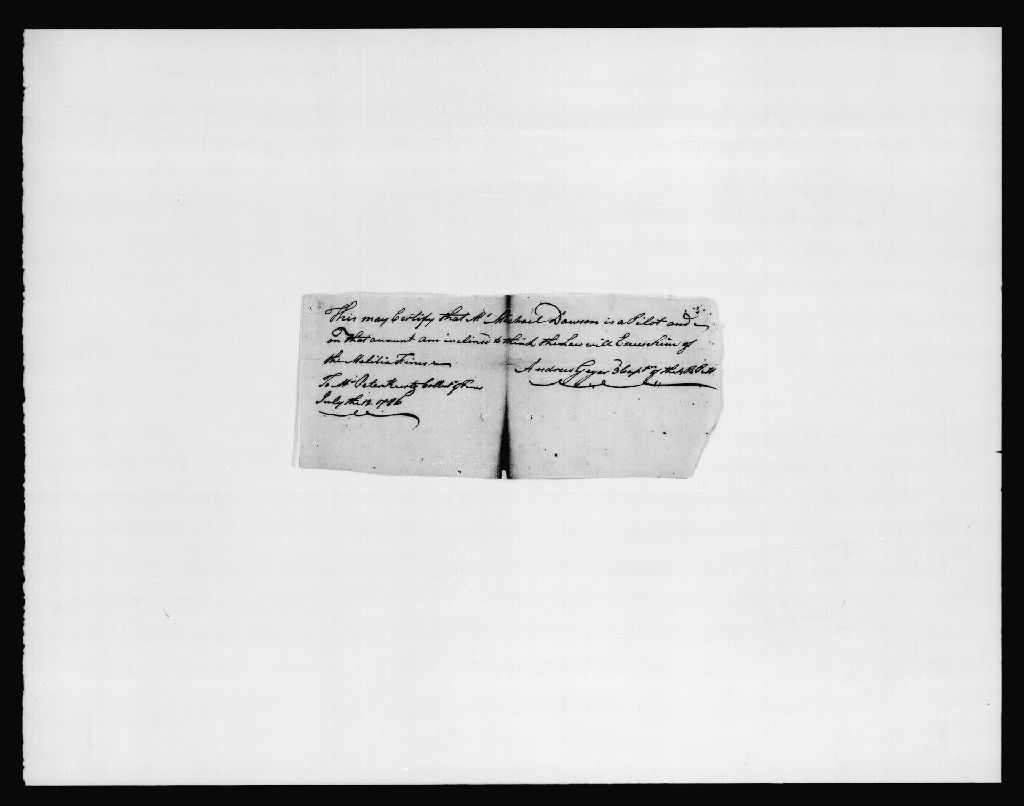 This may Certify that Mr Michael Dawson is a Pilot and
on that account am inclined to think the Law will Excuse him of
the Malitia Fines
Andrew Geyer Capt of the 4 B P M
To Mr Peter Kurtz Collet of Fines
July the 12 1786